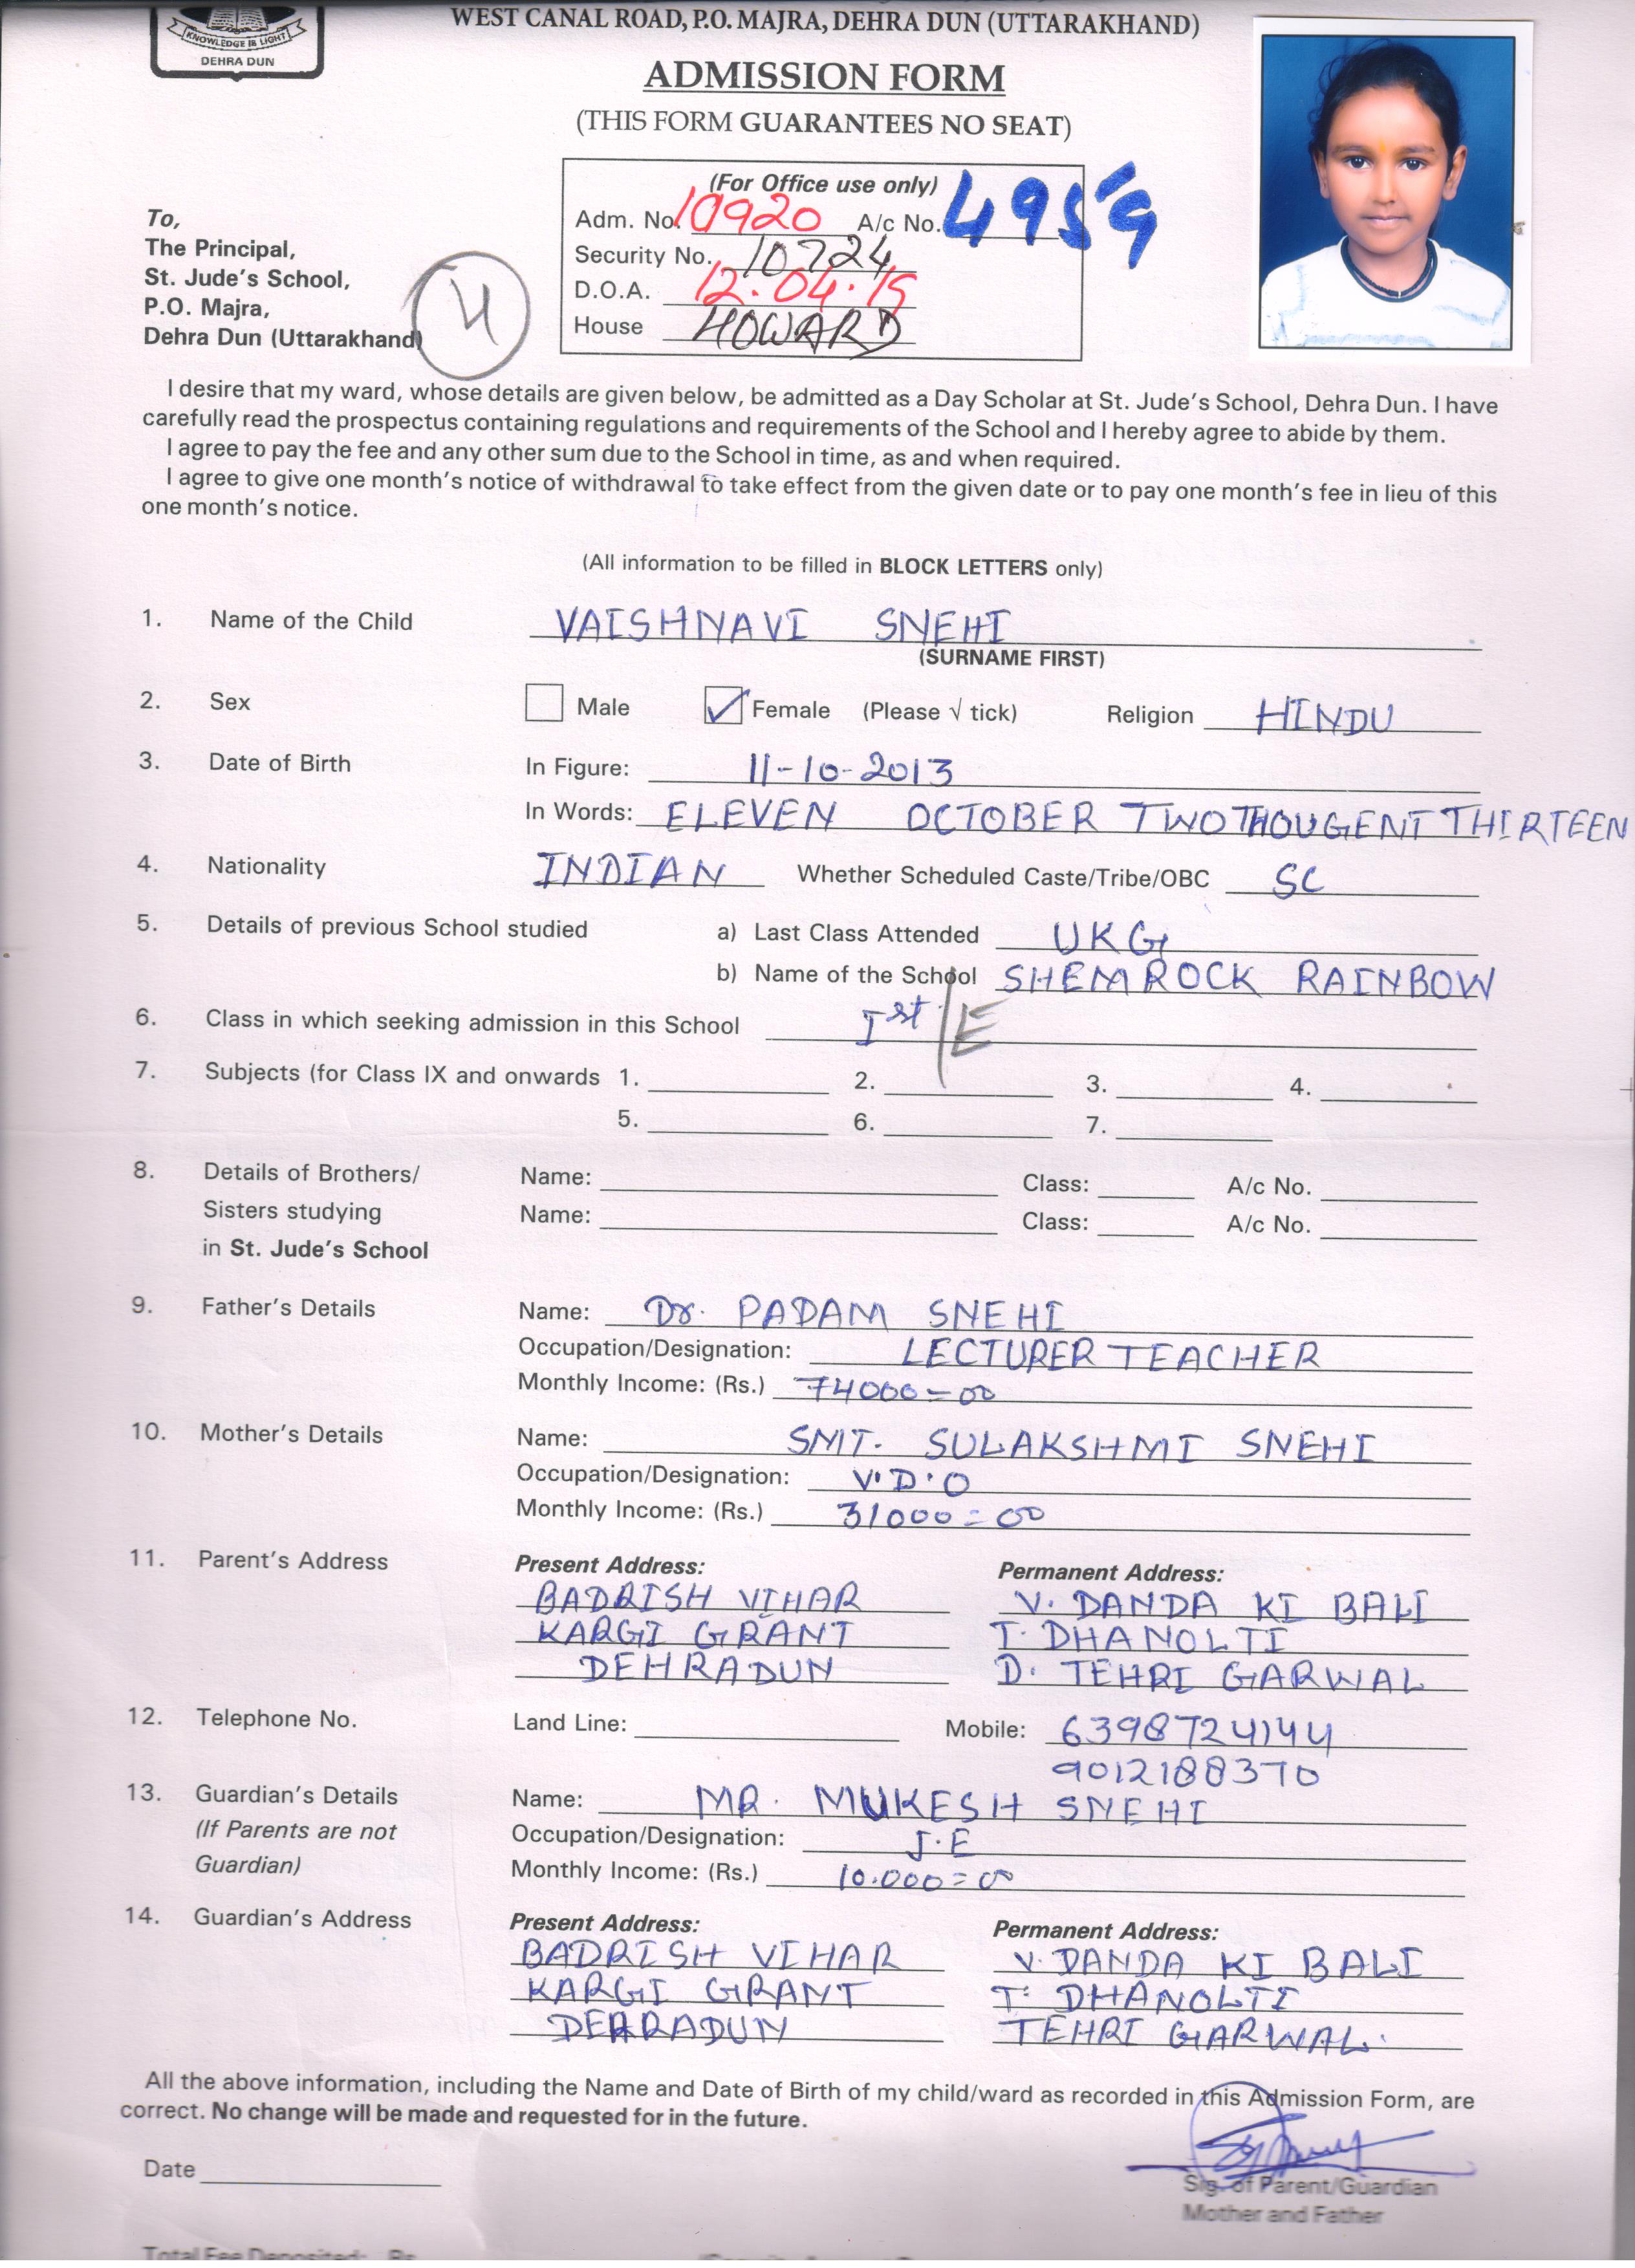 KNOWLEDGE IS LIGHT
DEHRA DUN
WEST CANAL ROAD, P.O. MAJRA, DEHRA DUN (UTTARAKHAND)
ADMISSION FORM
(THIS FORM GUARANTEES NO SEAT)
(For Office use only)
Adm. No. 10920 A/c No. 4959
Security No. 10724
D.O.A. 12.04.19
House HOWARD
To,
The Principal,
St. Jude's School,
P.O. Majra,
Dehra Dun (Uttarakhand)
4
I desire that my ward, whose details are given below, be admitted as a Day Scholar at St. Jude's School, Dehra Dun. I have
carefully read the prospectus containing regulations and requirements of the School and I hereby agree to abide by them.
I agree to pay the fee and any other sum due to the School in time, as and when required.
I agree to give one month's notice of withdrawal to take effect from the given date or to pay one month's fee in lieu of this
one month's notice.
(All information to be filled in BLOCK LETTERS only)
1. Name of the Child VAISHNAVI SNEHI
(SURNAME FIRST)
2. Sex Male Female (Please √ tick) Religion HINDU
3. Date of Birth In Figure: 11-10-2013
In Words: ELEVEN OCTOBER TWO THOUGENT THIRTEEN
4. Nationality INDIAN Whether Scheduled Caste/Tribe/OBC SC
5. Details of previous School studied a) Last Class Attended UKG
b) Name of the School SHEMROCK RAINBOW
6. Class in which seeking admission in this School Ist/E
7. Subjects (for Class IX and onwards 1. 2. 3. 4.
5. 6. 7.
8. Details of Brothers/ Name: Class: A/c No.
Sisters studying Name: Class: A/c No.
in St. Jude's School
9. Father's Details Name: Dr. PADAM SNEHI
Occupation/Designation: LECTURER TEACHER
Monthly Income: (Rs.) 74000=00
10. Mother's Details Name: SMT. SULAKSHMI SNEHI
Occupation/Designation: V.D.O
Monthly Income: (Rs.) 31000=00
11. Parent's Address Present Address: Permanent Address:
BADRISH VIHAR V. DANDA KI BALI
KARGI GRANT T. DHANOLTI
DEHRADUN D. TEHRI GARWAL
12. Telephone No. Land Line: Mobile: 6398724144
9012188370
13. Guardian's Details Name: MR. MUKESH SNEHI
(If Parents are not Occupation/Designation: J.E
Guardian) Monthly Income: (Rs.) 10.000=00
14. Guardian's Address Present Address: Permanent Address:
BADRISH VIHAR V. DANDA KI BALI
KARGI GRANT T. DHANOLTI
DEHRADUN TEHRI GARWAL.
All the above information, including the Name and Date of Birth of my child/ward as recorded in this Admission Form, are
correct. No change will be made and requested for in the future.
Date
Sig. of Parent/Guardian
Mother and Father
Total Fee Deposited: Rs.